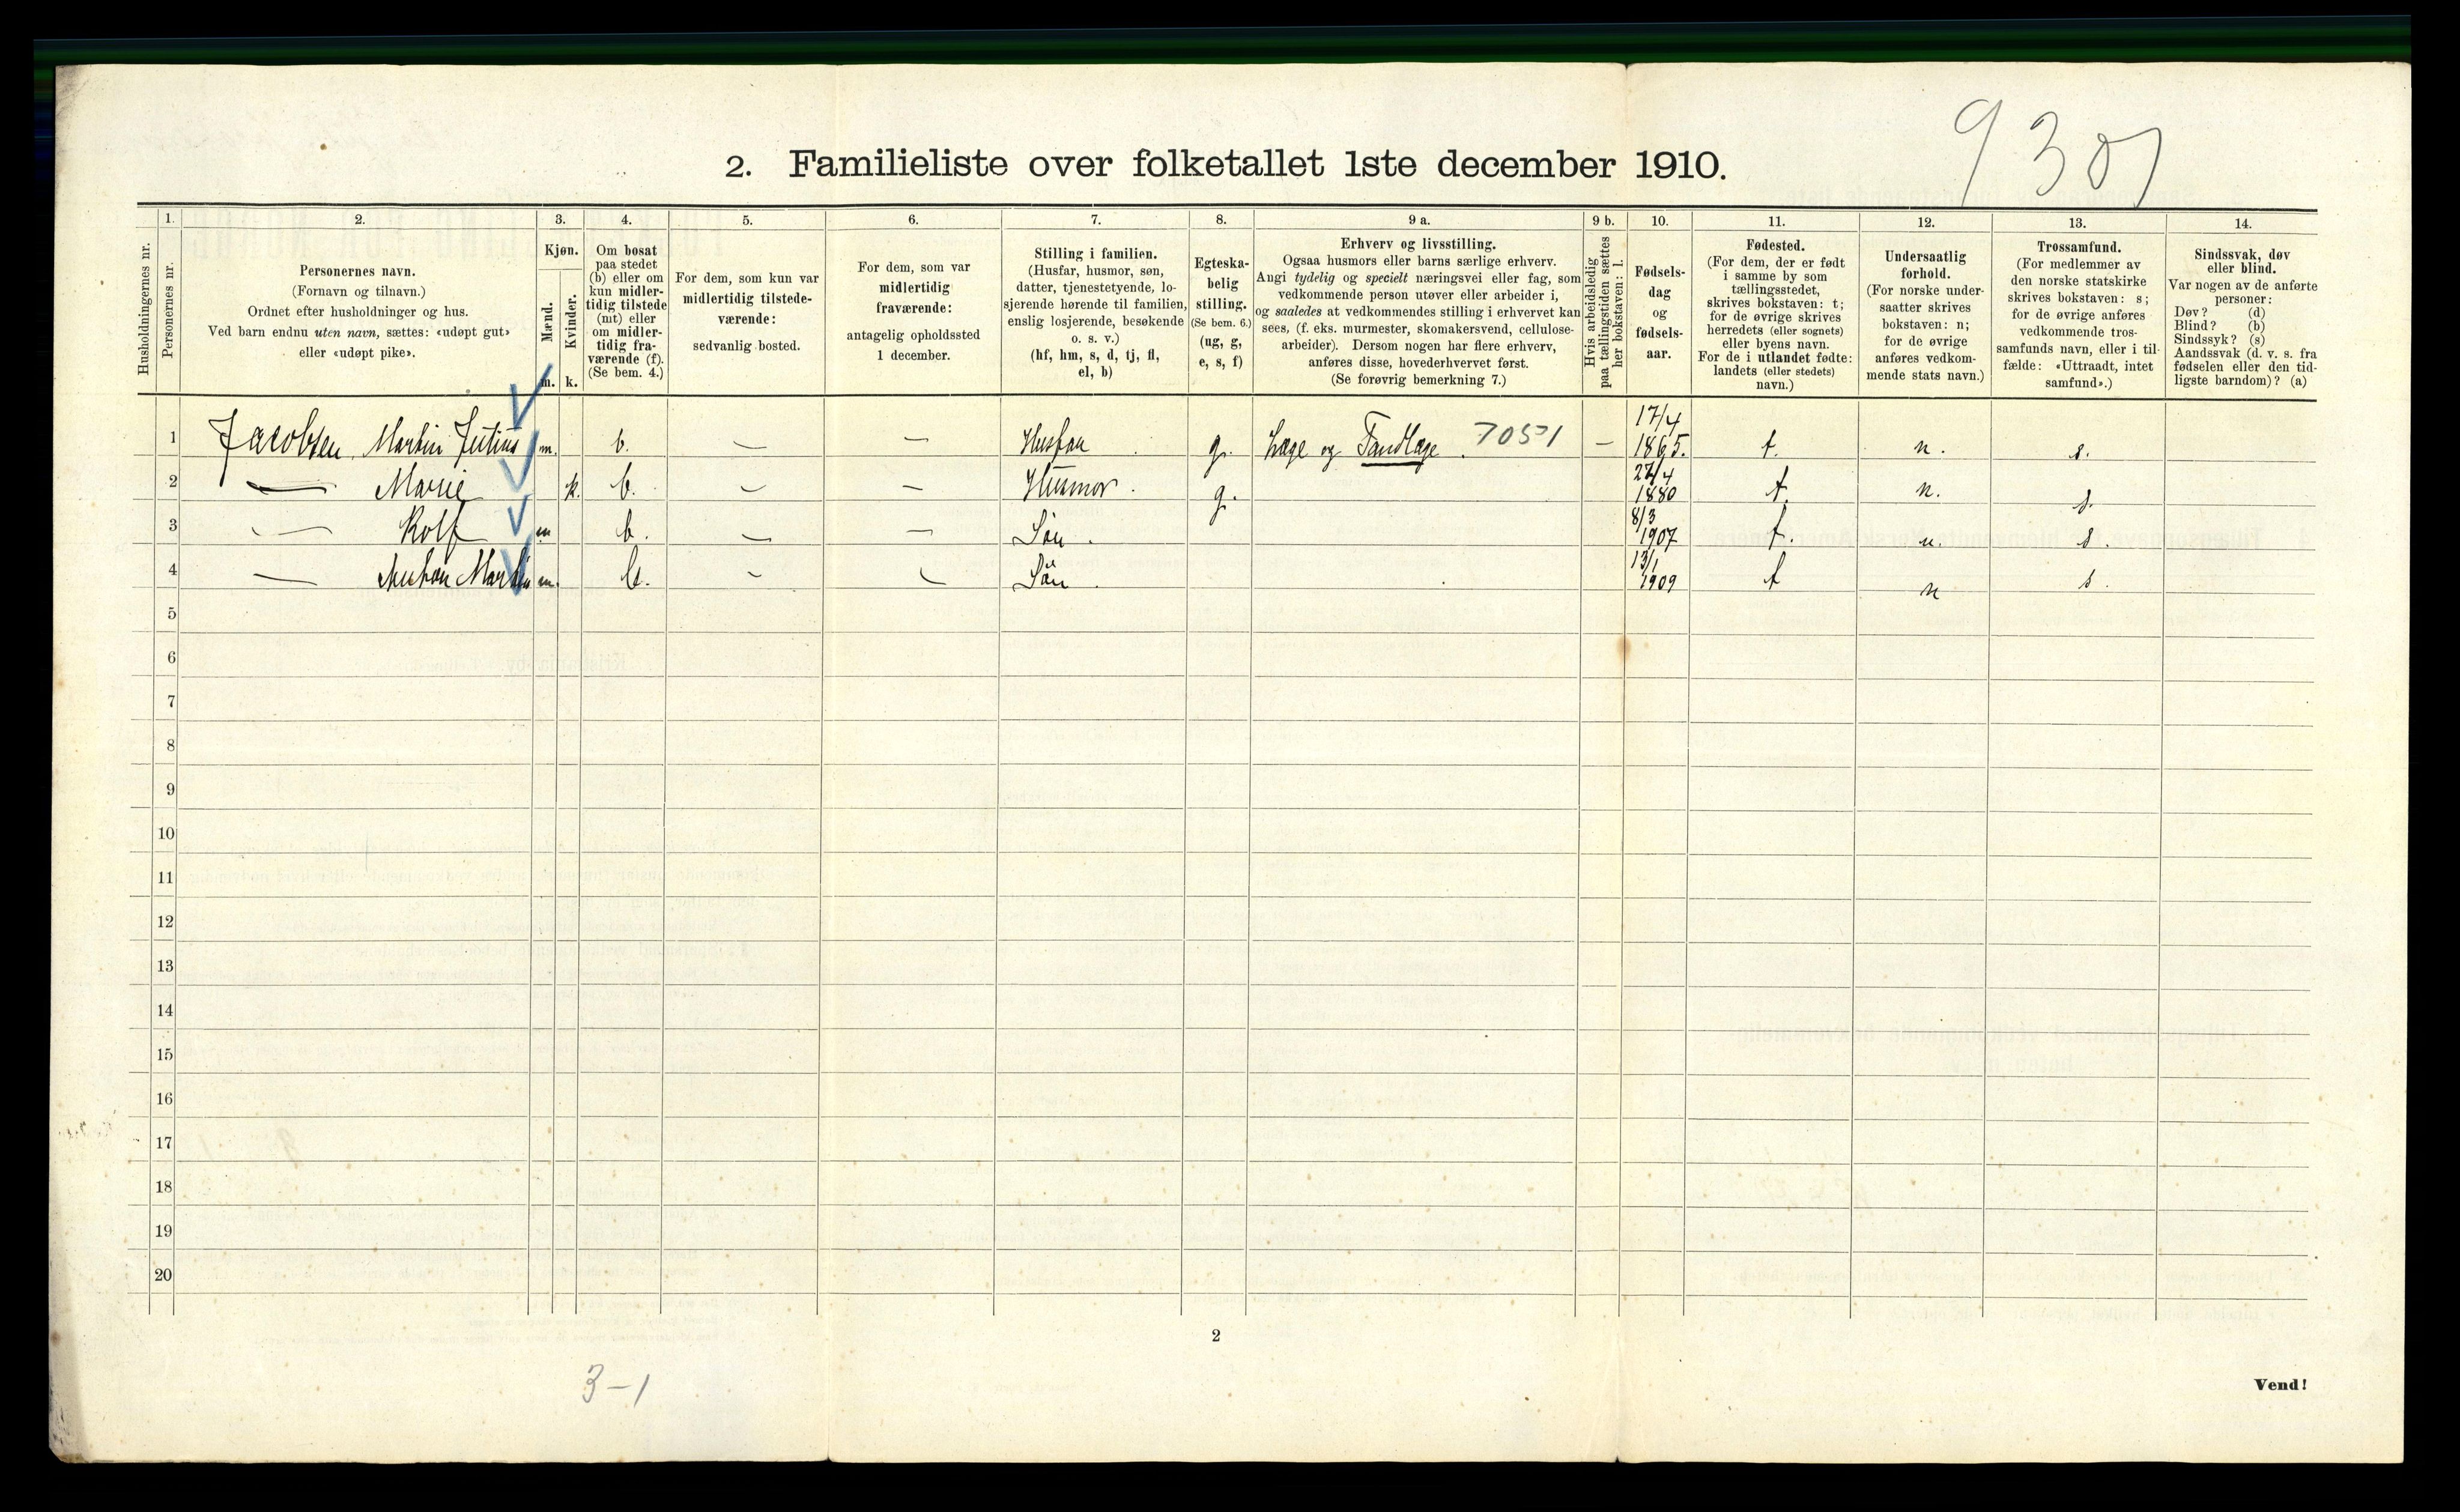 9301
2. Familieliste over folketallet 1ste december 1910.
Husholdningernes nr.
1.
Personernes nr.
2.
Personernes navn.
(Fornavn og tilnavn.)
Ordnet efter husholdninger og hus.
Ved barn endnu uten navn, sættes: «udøpt gut»
eller «udøpt pike».
3.
Kjøn.
Mænd.
Kvinder.
m. k.
4.
Om bosat
paa stedet
(b) eller om
kun midler-
tidig tilstede
(mt) eller
om midler-
tidig fra-
værende (f).
(Se bem. 4.)
5.
For dem, som kun var
midlertidig tilstede-
værende:
sedvanlig bosted.
6.
For dem, som var
midlertidig
fraværende:
antagelig opholdssted
1 december.
7.
Stilling i familien.
(Husfar, husmor, søn,
datter, tjenestetyende, lo-
sjerende hørende til familien,
enslig losjerende, besøkende
o. s. v.)
(hf, hm, s, d, tj, fl,
el, b)
8.
Egteska-
belig
stilling.
(Se bem. 6.)
(ug, g,
e, s, f)
9 a.
Erhverv og livsstilling.
Ogsaa husmors eller barns særlige erhverv.
Angi tydelig og specielt næringsvei eller fag, som
vedkommende person utøver eller arbeider i,
og saaledes at vedkommendes stilling i erhvervet kan
sees, (f. eks. murmester, skomakersvend, cellulose-
arbeider). Dersom nogen har flere erhverv,
anføres disse, hovederhvervet først.
(Se forøvrig bemerkning 7.)
9 b.
Hvis arbeidsledig
paa tællingstiden sættes
her bokstaven: l.
10.
Fødsels-
dag
og
fødsels-
aar.
11.
Fødested.
(For dem, der er født
i samme by som
tællingsstedet,
skrives bokstaven: t;
for de øvrige skrives
herredets (eller sognets)
eller byens navn.
For de i utlandet fødte:
landets (eller stedets)
navn.)
12.
Undersaatlig
forhold.
(For norske under-
saatter skrives
bokstaven: n;
for de øvrige
anføres vedkom-
mende stats navn.)
13.
Trossamfund.
(For medlemmer av
den norske statskirke
skrives bokstaven: s;
for de øvrige anføres
vedkommende tros-
samfunds navn, eller i til-
fælde: «Uttraadt, intet
samfund».)
14.
Sindssvak, døv
eller blind.
Var nogen av de anførte
personer:
Døv? (d)
Blind? (b)
Sindssyk? (s)
Aandssvak (d. v. s. fra
fødselen eller den tid-
ligste barndom)? (a)
1 Jacobsen, Martin Julius m. b. — — Husfar g. Læge og Tandlæge 7051 — 17/4 1865. t. n. s.
2 — Marie k. b. — — Husmor. g. 1880 t. n. s.
3 — Rolf m b. — — Søn. 8/3 1907 t. n. s.
4 — Martin m. b. — — Søn. 13/1 1909 t n s.
5
6
7
8
9
10
11
12
13
14
15
16
17
18
19
20
2
3-1
Vend!